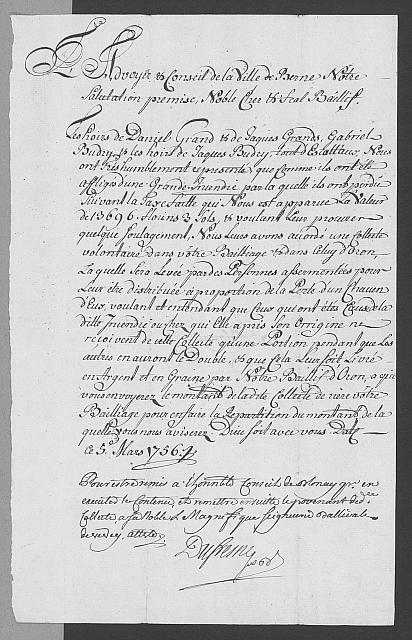 L'Advoyer & Conseil de la Ville de Berne Nôtre
Salutation premise, Noble Cher & Feal Baillif.
Les hoirs de Daniel Grand & de Jaques Grand, Gabriel
Budry & les hoirs de Jaques Budry, tous d'Escattaux, Nous
ont très humblement representé que comme ils ont été
affligé d'une Grande Incendie par la quelle ils ont perdû
Suivant la Taxe faite qui Nous est apparue La Valeur
de 13696. florins 3. sols, & voulant Leur procurer
quelque soulagement, Nous Leur avons acordé une collecte
volontaire dans vôtre Bailliage & dans Celuy d'Oron,
La quelle Sera Levée par des Personnes assermentées pour
Leur être distribuée à proportion de la Perte d'un Chacun
d'Eux, voulant et entendant que Ceux qui ont êtés Causes de la
ditte Incendie ou chez qui Elle a pris Son Orrigine ne
reçoivent de cette Collecte qu'une Portion pendant que Les
autres en auront Le Double, & que cela Leur soit Livré
en Argent et en Graine par Nôtre Baillif d'Oron, a qui
vous envoyerez le montant de la dite Collecte de riere vôtre
Bailliage pour en faire la Repartition du montant de la
quelle vous nous aviserez. Dieu soit avec vous. Datt
ce 5. Mars 1756.
Pour estre remis a L'honnble Conseil de blonay pr. en
executer le Contenu, et remettre ensuitte le provenant de dre
Collecte a sa Noble & Magnifique Seigneurie Baillivale
de vevey, atteste.
Dufresne